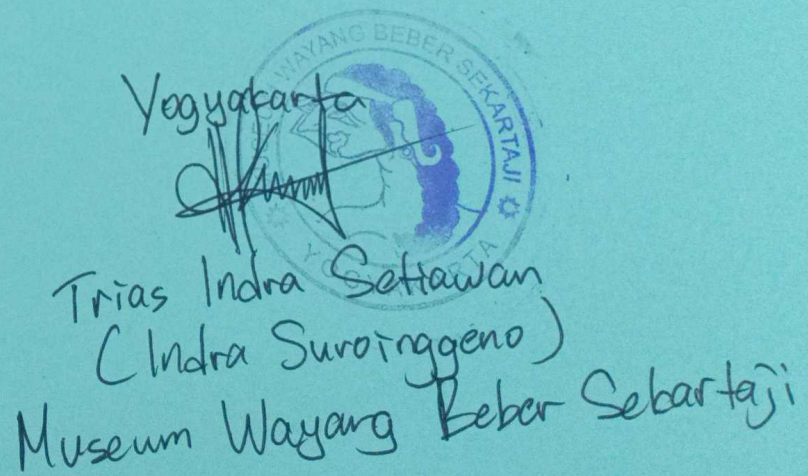 WAYANG BEBER SEKARTAJI
YOGYAKARTA
Yogyakarta
Trias Indra Setiawan
(Indra Suroinggeno)
Museum Wayang Beber Sekartaji